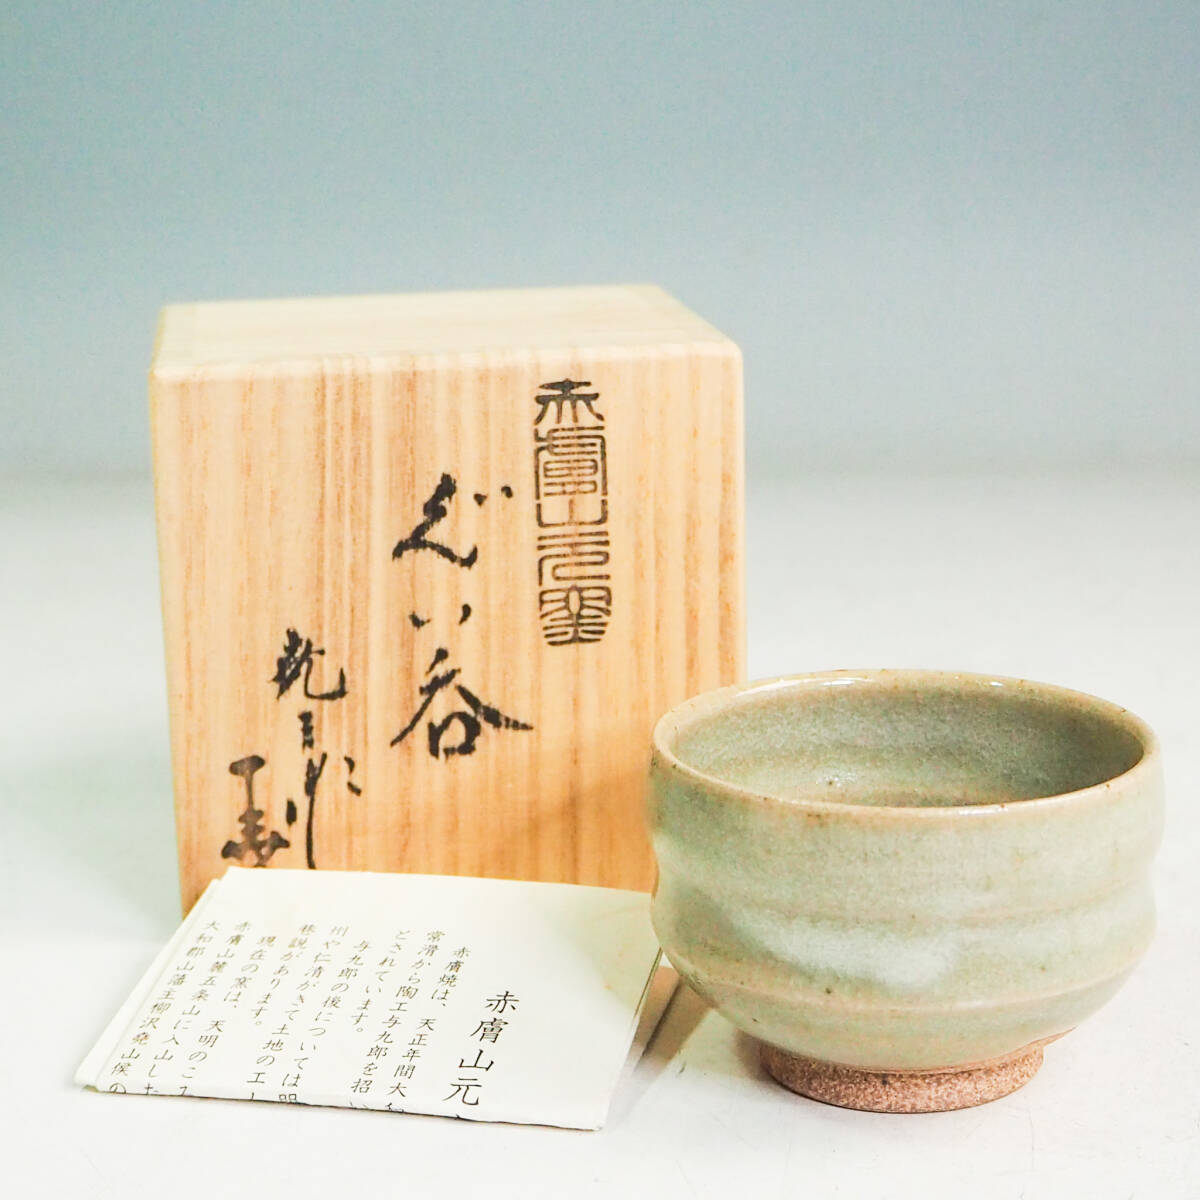 赤膚山元窯
ぐい呑
赤膚山元
赤膚焼は、天正年間大
常滑から陶工与九郎を招い
とされています。
与九郎の後については明
州や仁清がきて土地の工
巷説があります。
現在の窯は、天明のころ
赤膚山麓五条山に入山した
大和郡山藩主柳沢堯山侯の